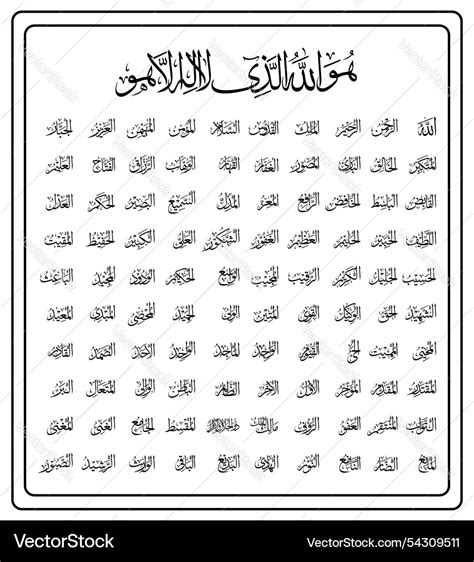 هُوَ اللهُ الَّذِي لَا إِلٰهَ إِلَّا هُوَ
الله الرحمن الرحيم الملك القدوس السلام المؤمن المهيمن العزيز الجبار
المتكبر الخالق البارئ المصور الغفار القهار الوهاب الرزاق الفتاح العليم
القابض الباسط الخافض الرافع المعز المذل السميع البصير الحكم العدل
اللطيف الخبير الحليم العظيم الغفور الشكور العلي الكبير الحفيظ المقيت
الحسيب الجليل الكريم الرقيب المجيب الواسع الحكيم الودود المجيد الباعث
الشهيد الحق الوكيل القوي المتين الولي الحميد المحصي المبدئ المعيد
المحيي المميت الحي القيوم الواجد الماجد الواحد الأحد الصمد القادر
المقتدر المقدم المؤخر الأول الآخر الظاهر الباطن الوالي المتعال البر
التواب المنتقم العفو الرؤوف مالك الملك ذو الجلال والإكرام المقسط الجامع الغني المغني
المانع الضار النافع النور الهادي البديع الباقي الوارث الرشيد الصبور
VectorStock® VectorStock.com/54309511